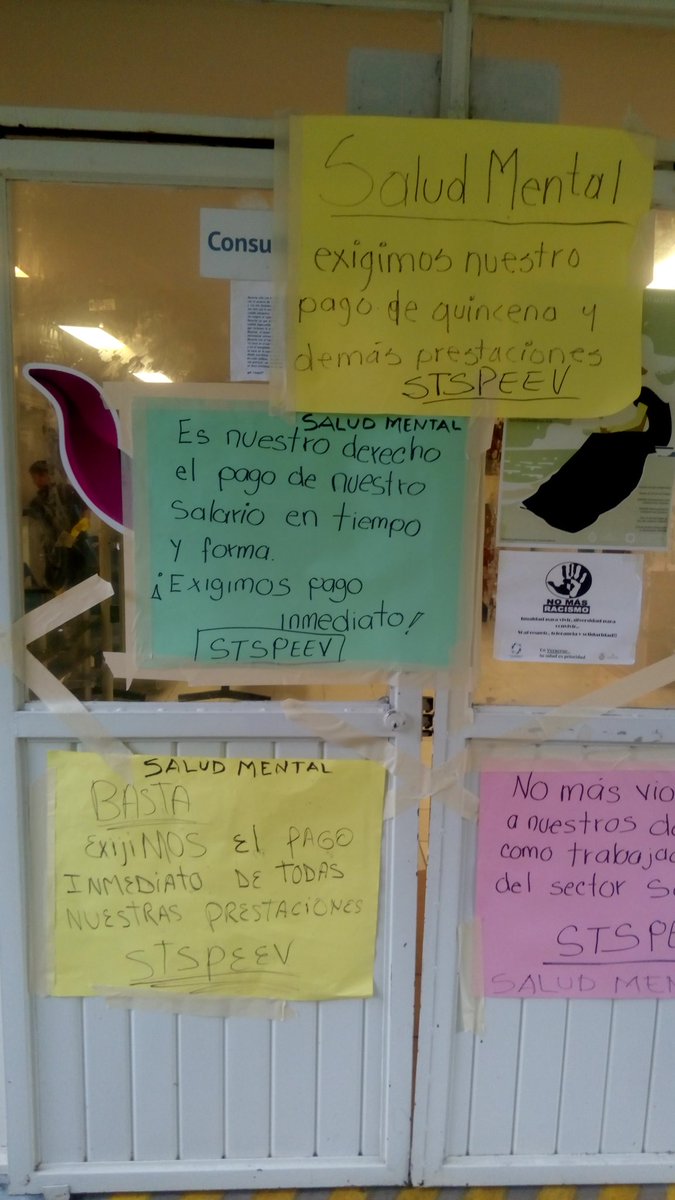 Salud Mental
exigimos nuestro
pago de quincena y
demás prestaciones
STSPEEV
Consu
SALUD MENTAL
Es nuestro derecho
el pago de nuestro
salario en tiempo
y forma.
¡Exigimos pago
inmediato!
STSPEEV
NO MÁS
RACISMO
Igualdad para vivir, diversidad para
convivir.
SALUD MENTAL
BASTA
exijiMOS El PAGO
INMEDIATO DE TODAS
NUESTRAS PRESTACIONES
STSPEEV
No más vio
a nuestros d
como trabajad
del sector S
STSPE
SALUD MEN